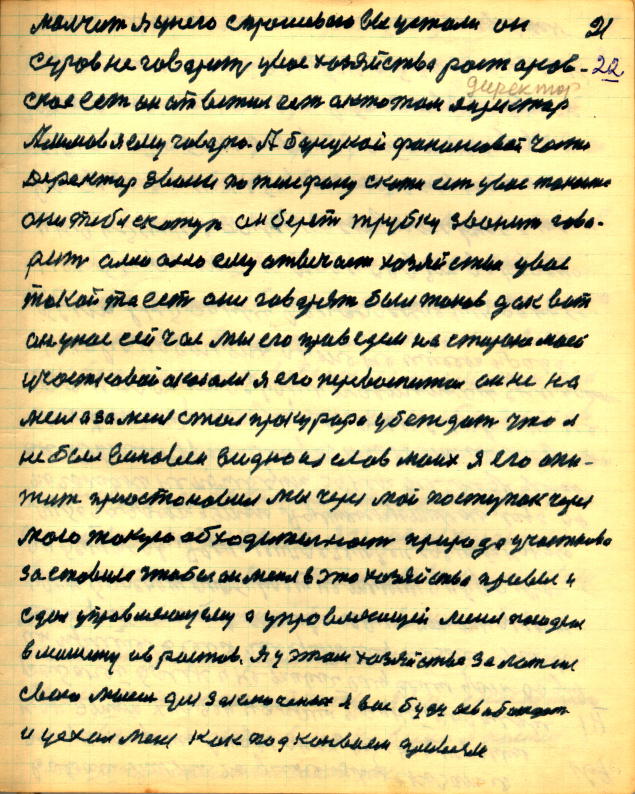 молчит я у него спрошеваю Вы устали он 21
суров не говарит у вас хозяйства ростаков- 22
директор
ское есть он ответил есть а кто там директор
я ему говарю. А
Деректор звони по телефону
они тебе скажут он берёт трубку звонит гово-
рит ало ало ему отвичает хозяйства у вас
такой то есть они говарят был таков дак вот
он у нас сейчас мы его приведем на сторона мой
участковай я его перевоспитал он не на
меня а за меня стал прокурора убеждат что я
не был виновен видно из слов моих я его
жит приостоновил мы через мой поступок через
мою такую обходительност природа участкова
заставила чтобы он меня в это хозяйства привел и
сдал управляющему а управляющей меня посадил
в машину и в ростов. Я у этом хозяйства заложил
свою мысл для заключеных я вас буду освабождат
и уехал меня как под конваем привезли